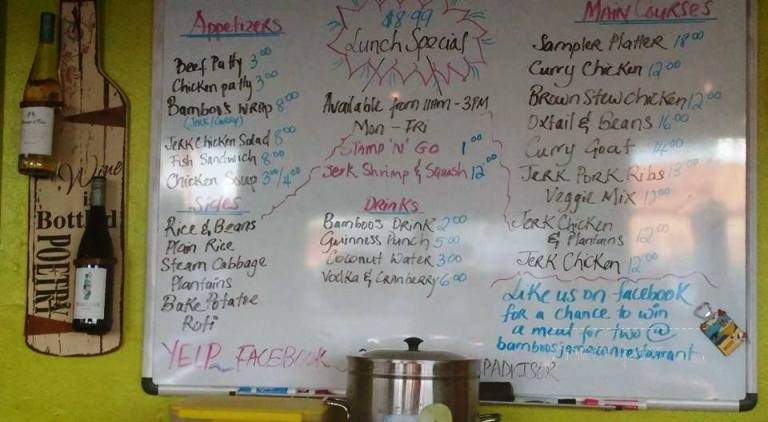 Appetizers
Beef Patty 3.00
Chicken patty 3.00
Bamboo's WRAP 8.00
(Jerk/Curry)
JERK Chicken Salad 8.00
Fish Sandwich 8.00
Chicken Soup 3.00/4.00
Sides
Rice & Beans
Plain Rice
Steam Cabbage
Plantains
Bake Potatoe
Roti
$8.99
Lunch Special
Available from 11am - 3PM
Mon - Fri
STAMP 'N' GO 1.00
Jerk Shrimp & Squash 12.00
DRINKS
Bamboo's DRINK 2.00
Guinness Punch 5.00
Coconut Water 3.00
Vodka & Cranberry 6.00
MAIN COURSES
Sampler Platter 18.00
Curry Chicken 12.00
BROWN Stew Chicken 12.00
Oxtail & Beans 16.00
Curry Goat 14.00
JERK PORK Ribs 13.00
Veggie Mix 12.00
JERK Chicken
& Plantains 12.00
JERK Chicken 12.00
Like us on facebook
for a chance to win
a meal for two @
bamboosjamaicanrestaurant
YELP FACEBOOK
PADVISOR
Wine
is
Bottled
POETRY